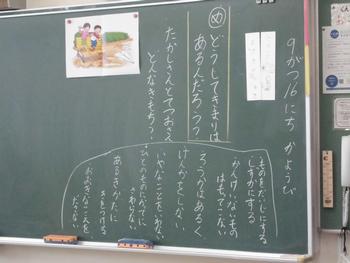 9がつ16にち かようび
め
どうしてきまりは
あるんだろう?
たかしさんとてつおさん
どんなきもち?
ものをだいじにする
しずかにする
かんけいないもの
はもってこない
ろうかはあるく
けんかをしない
いやなことをいわない
ひとのものにかってに
さわらない
あるきかたに
きをつける
おおきなこえを
ださない